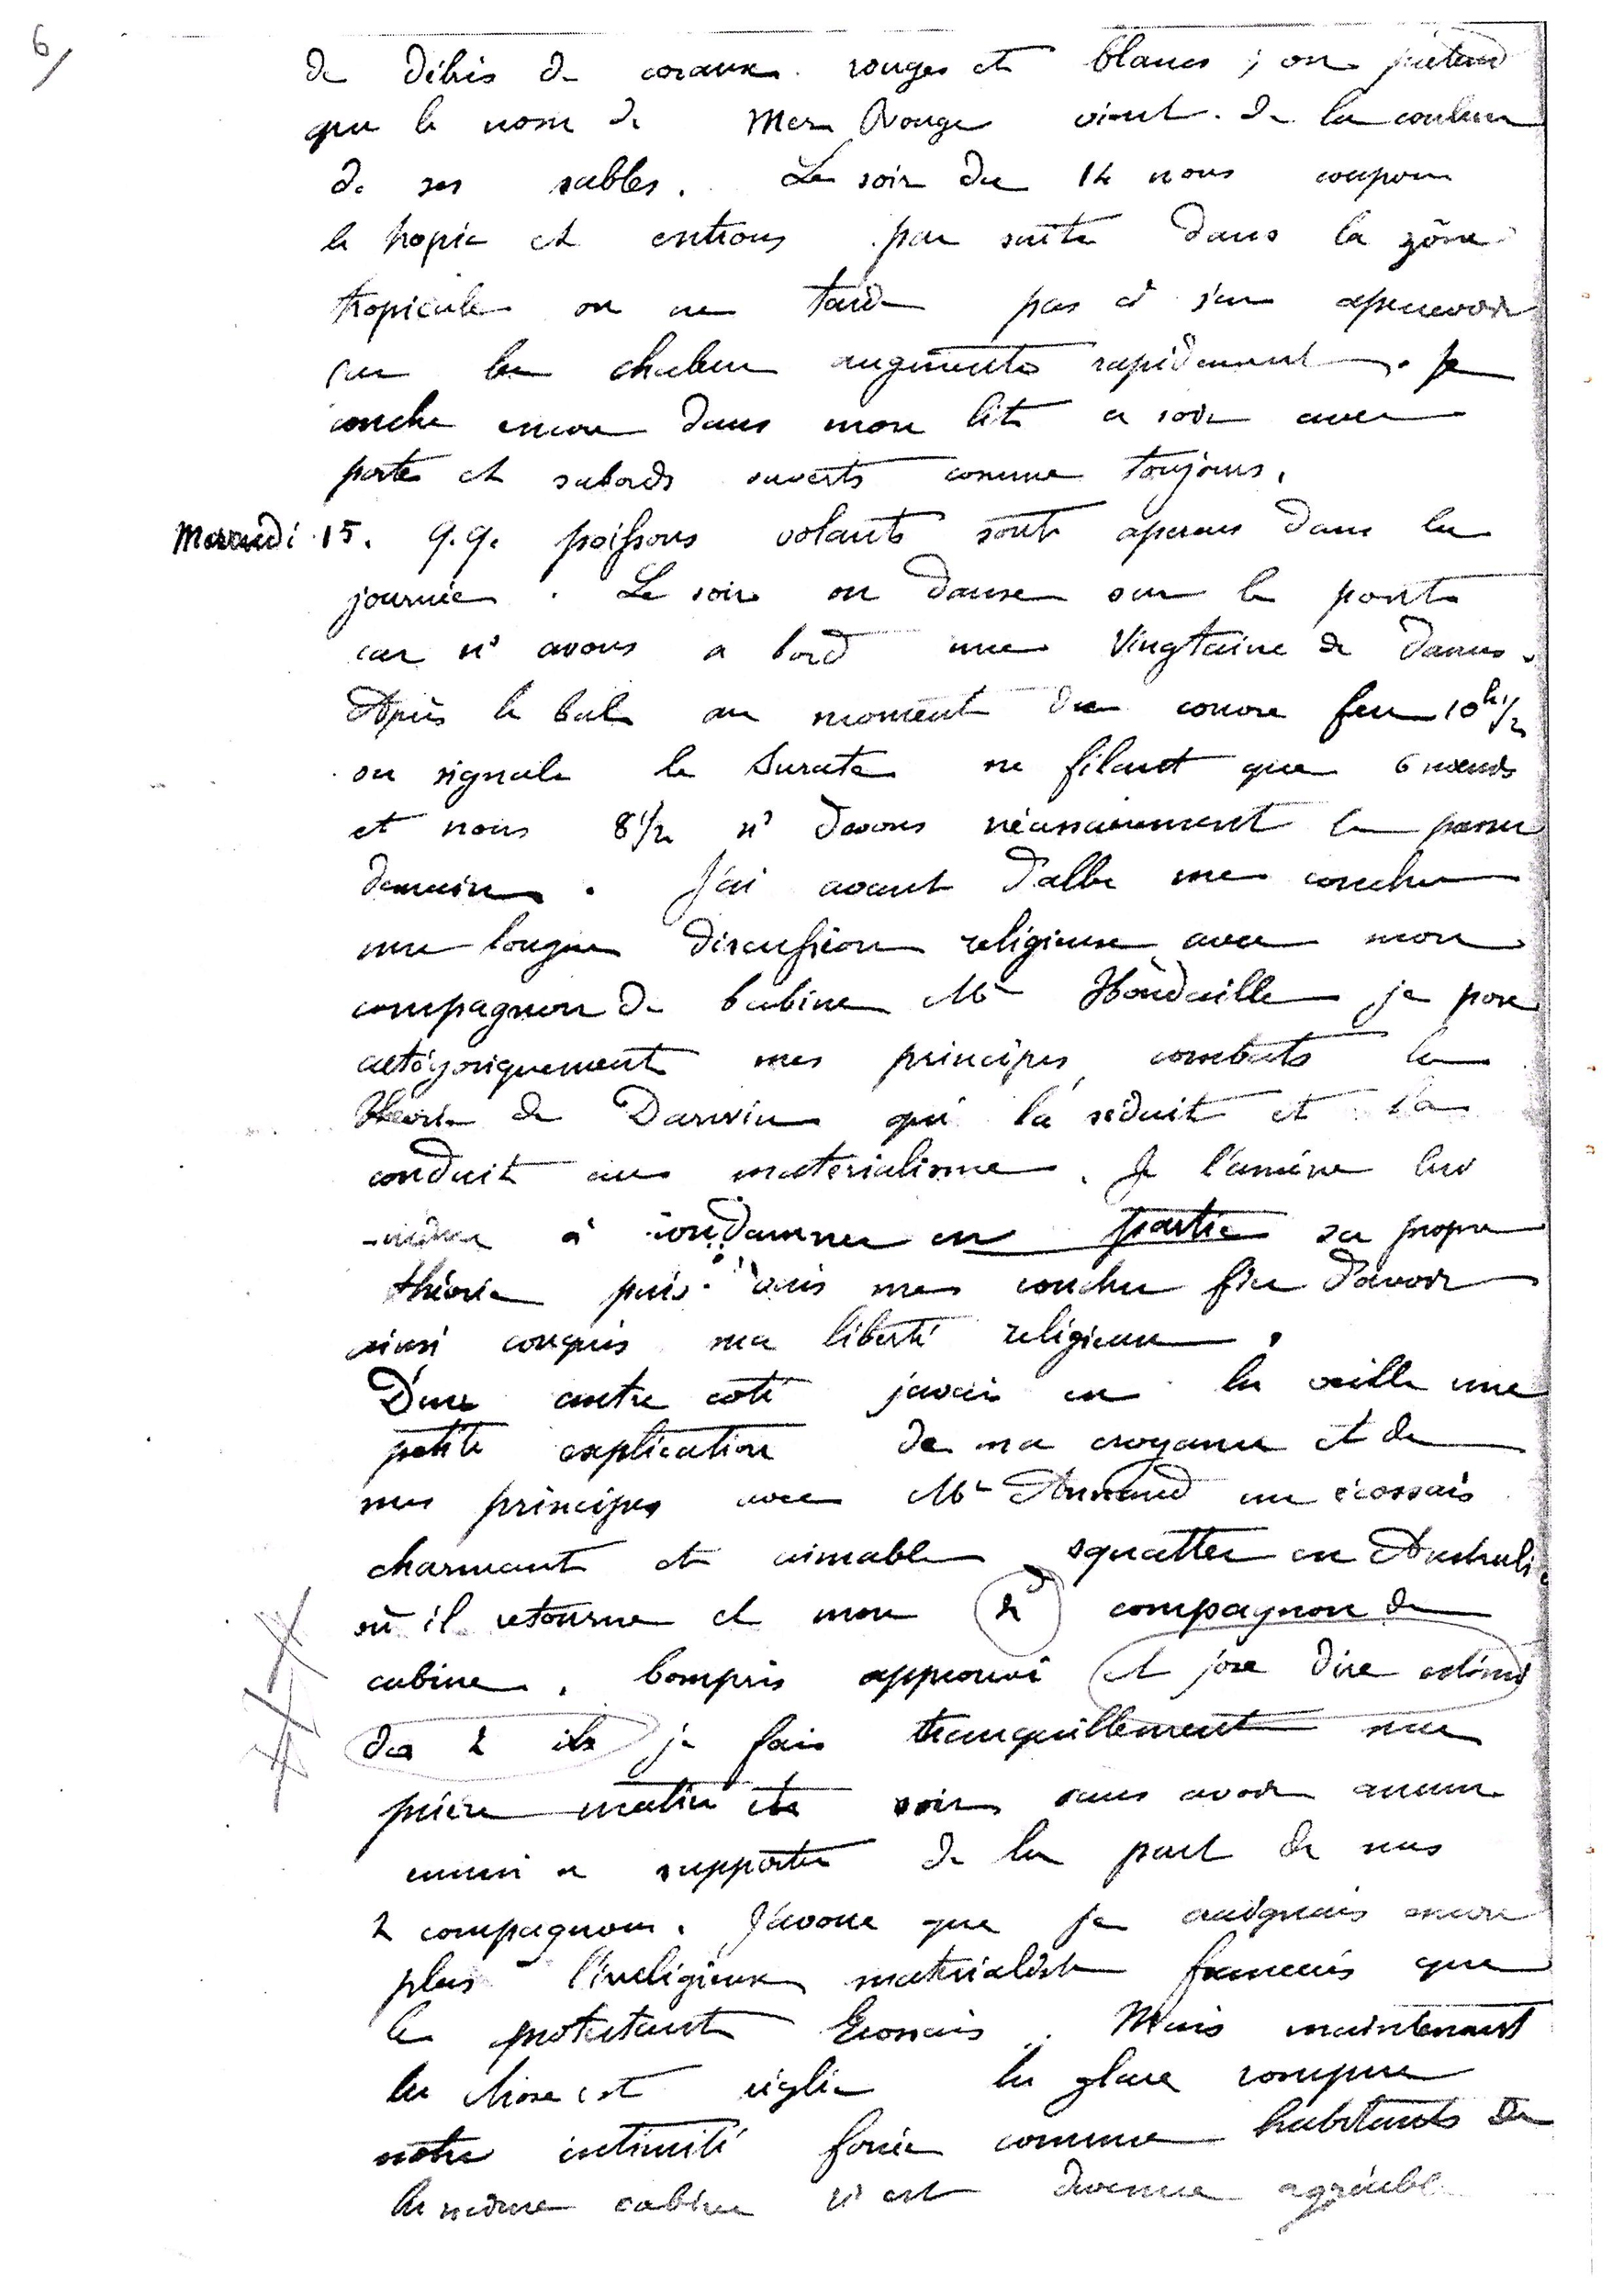 6/
de débris de coraux rouges et blancs ; on prétend
que le nom de Mer Rouge vient de la couleur
de ses sables. Le soir du 14 nous coupons
le tropic et entrons par suite dans la zône
tropicale on ne tarde pas à s'en apercevoir
car la chaleur augmente rapidement. Je
couche encore dans mon lit ce soir avec
porte et sabords ouverts comme toujours.
Mercredi 15. q.q. poissons volants sont aperçus dans la
journée. Le soir on danse sur le pont
car ns avons a bord une vingtaine de dames.
Après le bal au moment du couvre feu 10h 1/2
on signale le Surate ne filant que 6 nœuds
et nous 8 1/2 ns devons nécessairement le passer
demain. J'ai avant d'aller me coucher
une longue discussion religieuse avec mon
compagnon de cabine Mr Houdaille je pose
catégoriquement mes principes, combats la
théorie de Darwin qui l'a séduit et l'a
conduit au materialisme. Je l'amène lui
-même à condamner en partie sa propre
théorie puis vais me coucher fier d'avoir
ainsi conquis ma liberté religieuse.
D'un autre coté j'avais eu la veille une
petite explication de ma croyance et de
mes principes avec Mr un écossais
charmant et aimable squatter en Australie
où il retourne et mon 2d compagnon de
cabine. Compris approuvé et j'ose dire estimé
des 2 ils je fais tranquillement ma
prière matin et soir sans avoir aucun
ennui a supporter de la part de mes
2 compagnons. J'avoue que je craignais encore
plus l'irreligieux materialiste français que
le protestant Ecossais. Mais maintenant
la chose est réglée la glace rompue
notre intimité forcée comme habitants de
la même cabine n'est devenue agréable